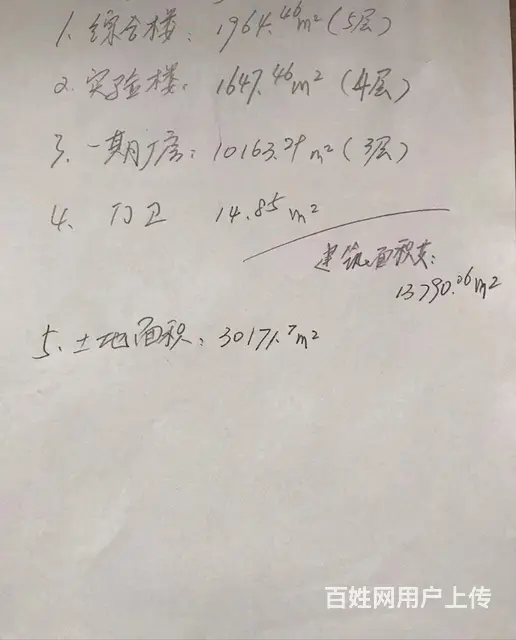 1. 综合楼: 1964.46m² (5层)
2. 实验楼: 1647.46m² (4层)
3. 一期厂房: 10163.29m² (3层)
4. 门卫 14.85m²
建筑面积共:
13790.06m²
5. 土地面积: 30171.7m²
百姓网用户上传